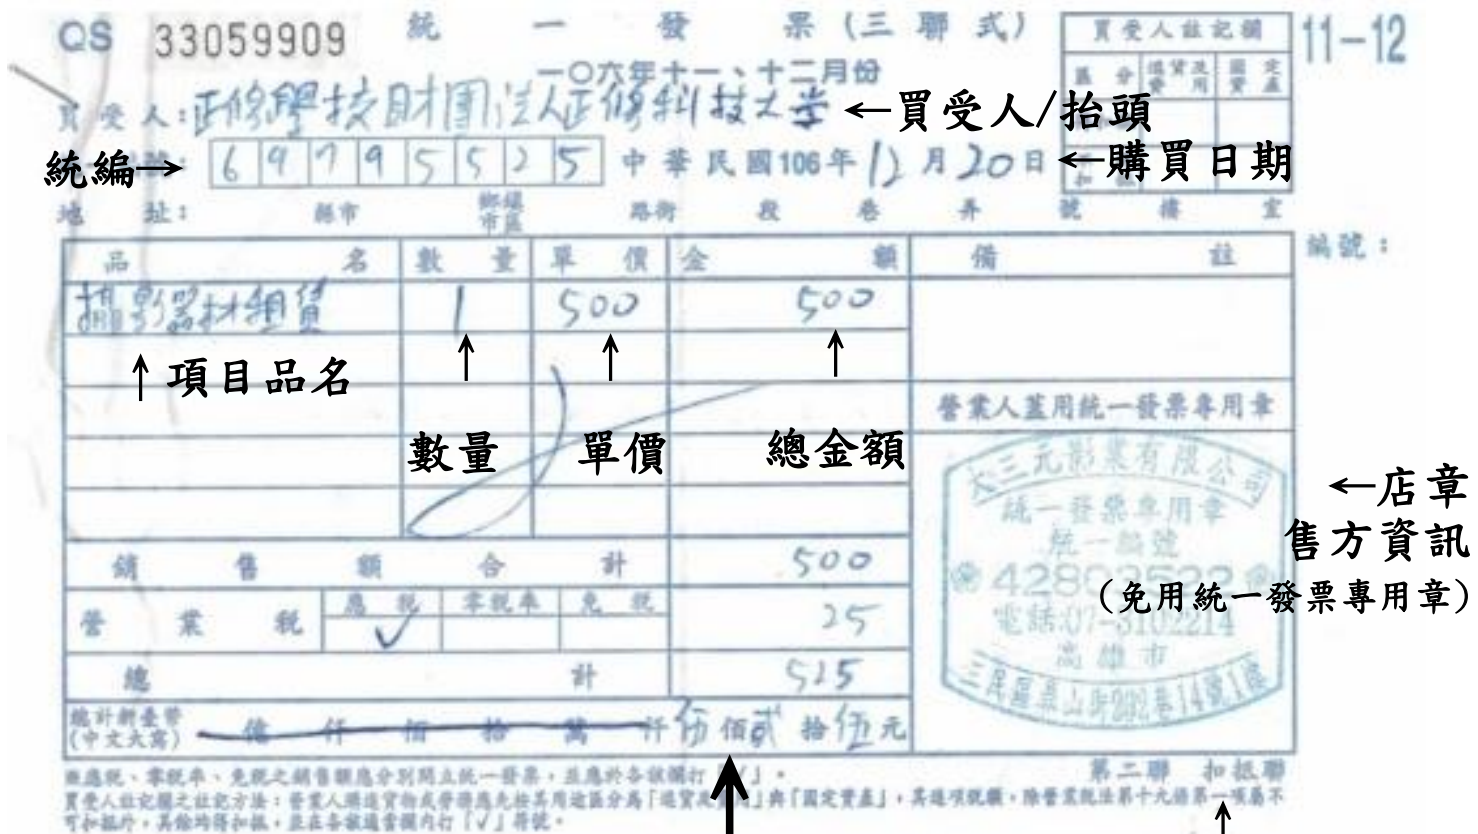 QS 33059909 統一發票(三聯式) 買受人註記欄 11-12
一〇六年十一、十二月份
區分 進貨及費用 固定資產
買受人:正修學校財團法人正修科技大學 ←買受人/抬頭
統編→ 69795525 中華民國106年12月20日 ←購買日期
地址: 縣市 鄉鎮市區 路街 段 巷 弄 號 樓 室
編號:
品名 數量 單價 金額 備註
攝影器材租賃 1 500 500
↑項目品名 ↑ ↑ ↑
數量 單價 總金額
營業人蓋用統一發票專用章
大三元影業有限公司
統一發票專用章
統一編號
電話:07-3102214
高雄市
←店章
售方資訊
(免用統一發票專用章)
銷售額合計 500
營業稅 應稅 零稅率 免稅 25
✓
總計 525
總計新臺幣 億仟佰拾萬仟伍佰貳拾伍元
(中文大寫)
第二聯 扣抵聯
※應稅、零稅率、免稅之銷售額應分別開立統一發票,並應於各該欄打「✓」。
買受人註記欄之註記方法:營業人購進貨物或勞務應先按其用途區分為「進貨及費用」與「固定資產」,其進項稅額,除營業稅法第十九條第一項屬不
可扣抵外,其餘均得扣抵,並在各該適當欄內打「✓」符號。